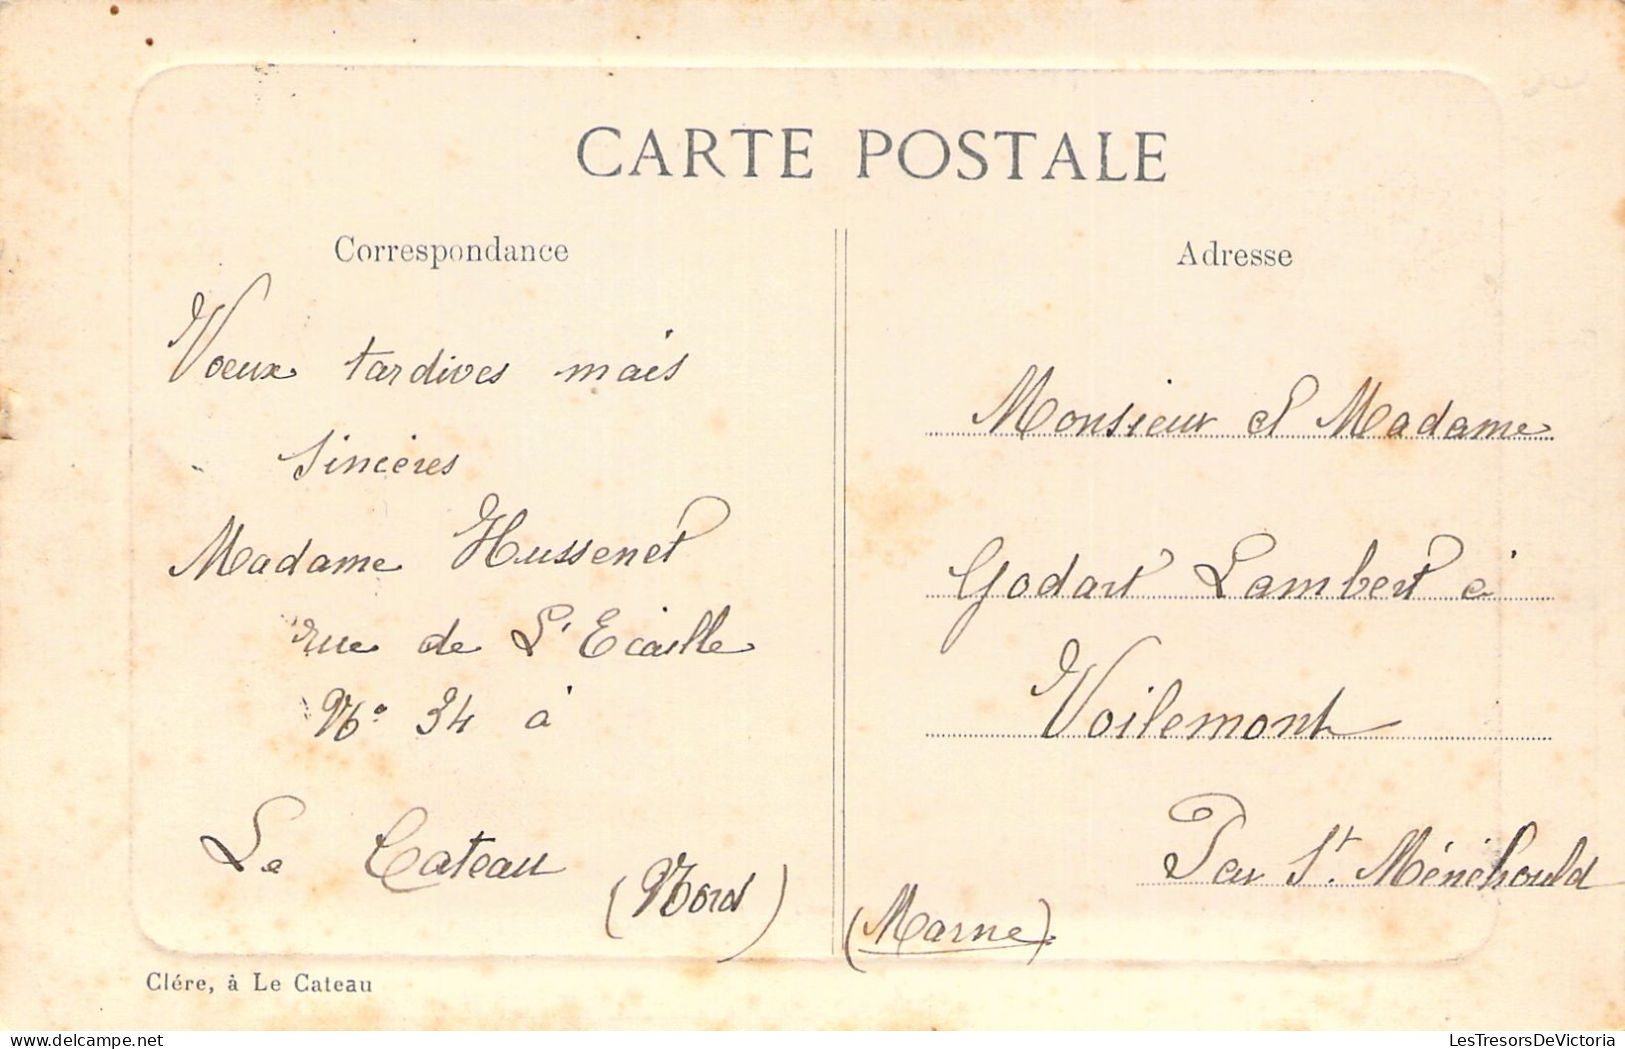 CARTE POSTALE
Correspondance
Voeux tardives mais
sincères
Madame Hussenet
rue de L'Ecaille
No 34 à
Le Cateau
(Nord)
Clére, à Le Cateau
Adresse
Monsieur et Madame
Godart Lambert à
Voilemont
Par St. Ménéhould
(Marne)
delcampe.net
LesTresorsDeVictoria